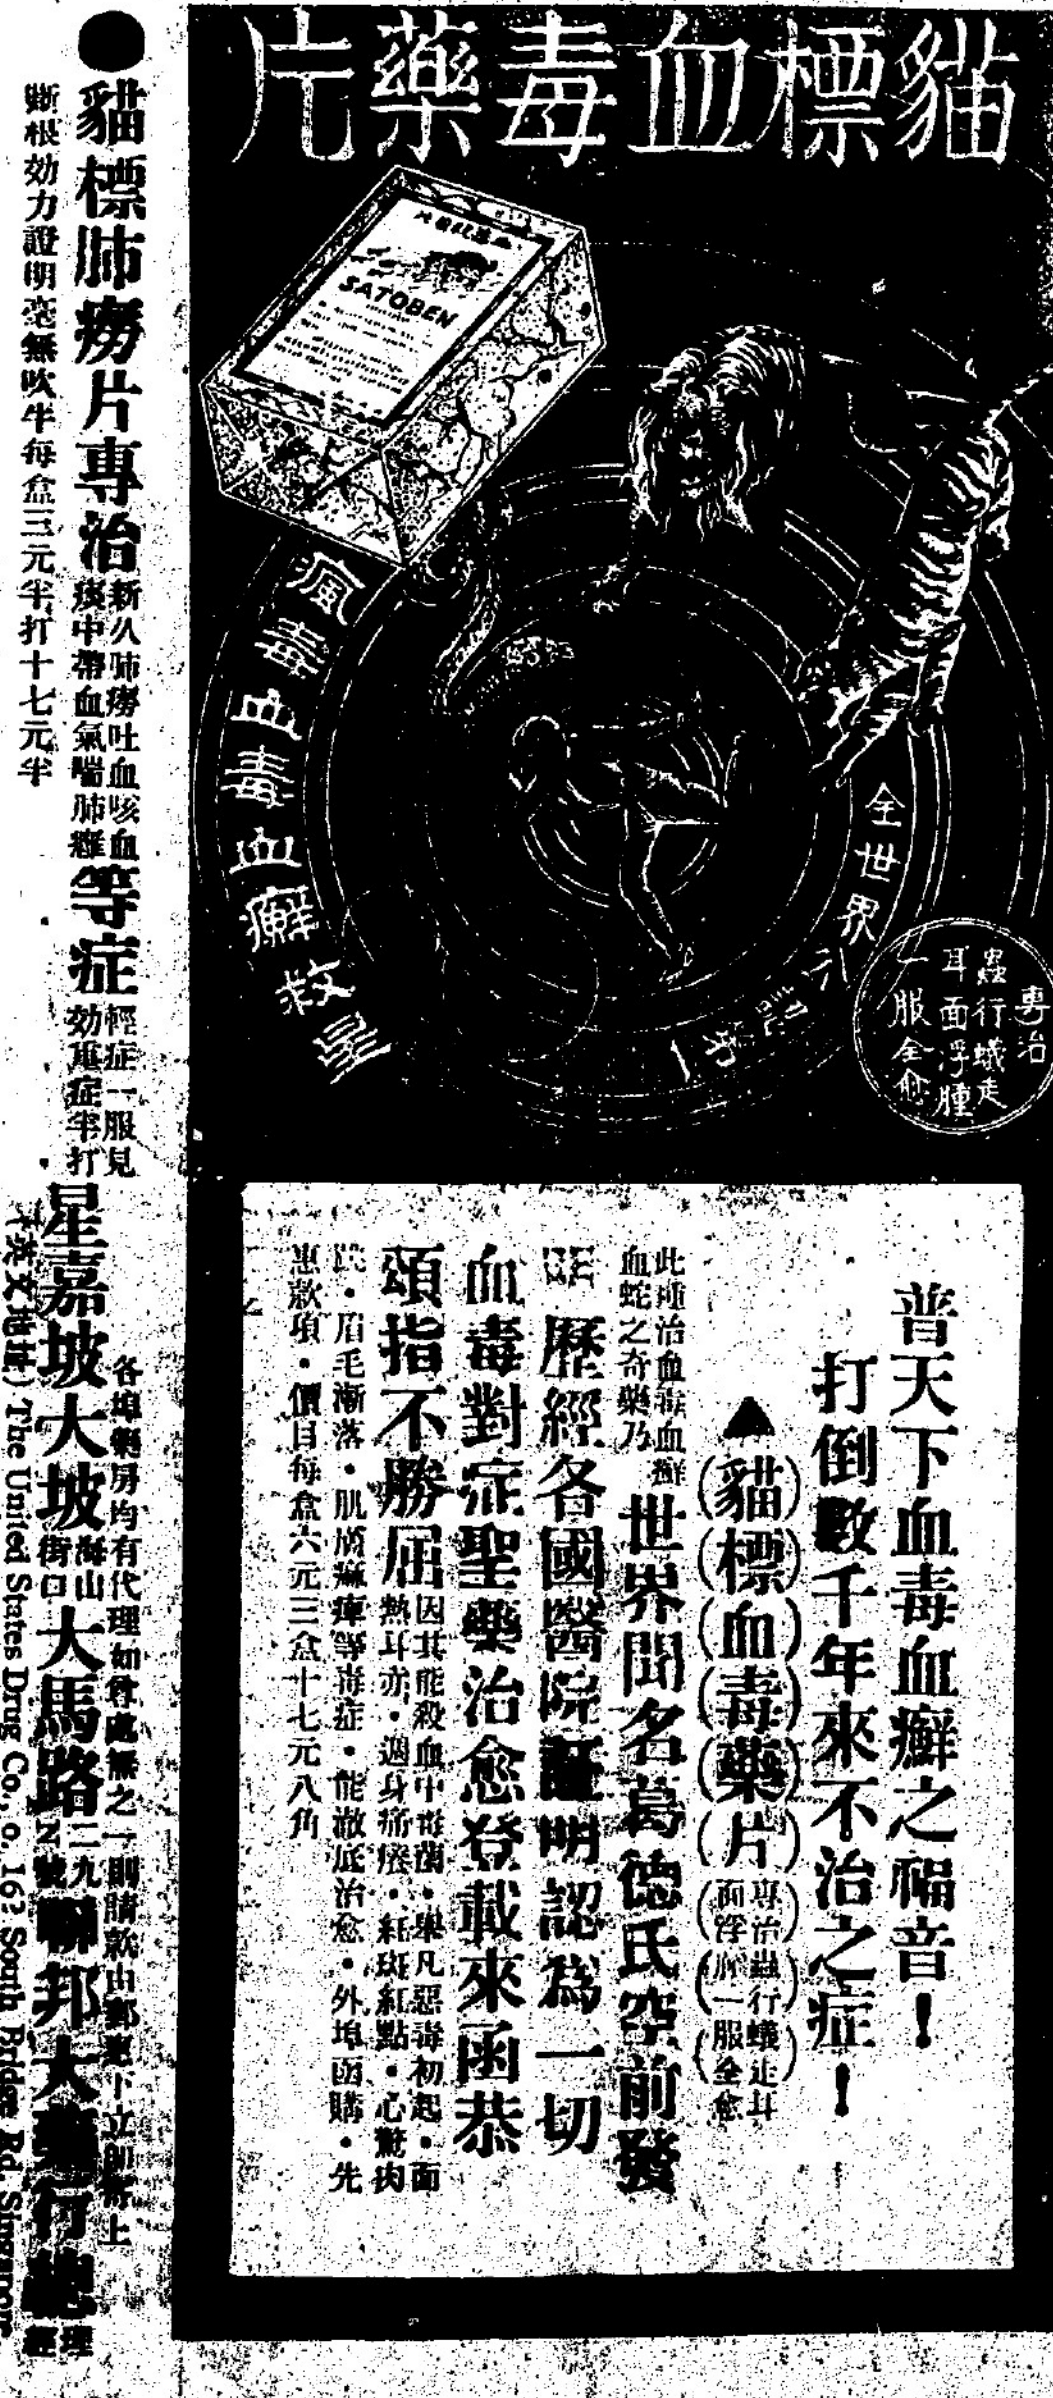 貓標血毒藥片
SATOBEN
瘋毒血毒血癬救星
全世界
第一
專治
蟲行蟻走
耳面浮腫
一服全愈
普天下血毒血癬之福音!
打倒數千年來不治之症!
▲(貓)(標)(血)(毒)(藥)(片)
(專治蟲行蟻走耳
面浮腫一服全愈)
此種治血毒血癬
血蛇之奇藥乃
世界聞名葛德氏空前發
明 歷經各國醫院證明認為一切
血毒對症聖藥治愈登載來函恭
頌指不勝屈
因其能殺血中毒菌・舉凡惡毒初起・面
熱耳赤・週身痛癢・紅斑紅點・心驚肉
跳・眉毛漸落・肌膚痳痺等毒症・能澈底治愈・外埠函購・先
惠款項・價目每盒六元三盒十七元八角
●貓標肺癆片專治
新久肺癆吐血咳血
痰中帶血氣喘肺癰
等症
輕症一服見
効重症半打
斷根効力證明毫無吹牛每盒三元半打十七元半
各埠藥房均有代理如貴處無之
請款由郵惠下立即寄上
星嘉坡大坡
海山
街口
大馬路
聯邦大藥行總
經理
(英文地址) The United States Drug Co., 162 South Bridge Rd. Singapore.